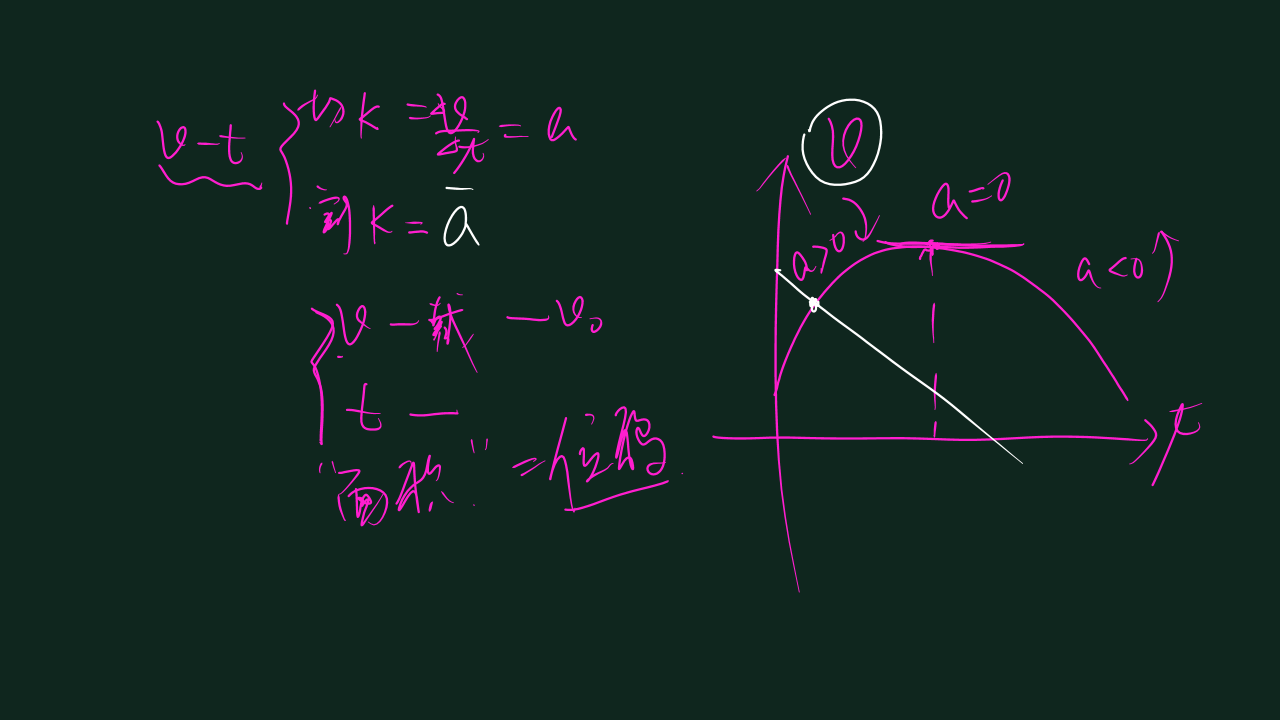 v-t
切 k = Δv/Δt = a
割 k = a̅
v - 截 - v₀
t -
"面积" = 位移
v
a=0
a>0
a<0
t